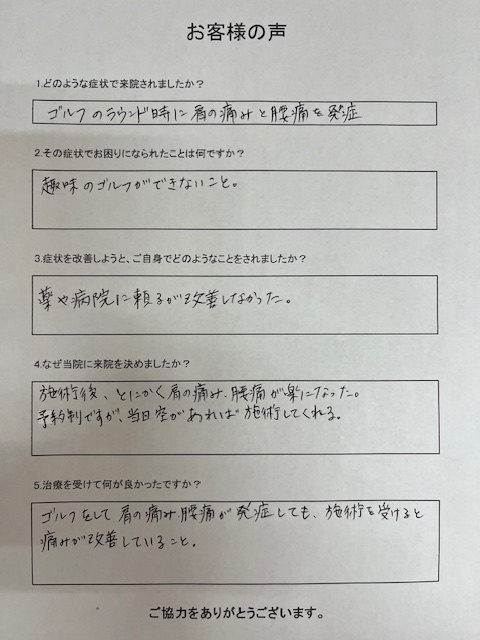 お客様の声
1.どのような症状で来院されましたか？
ゴルフのラウンド時に肩の痛みと腰痛を発症
2.その症状でお困りになられたことは何ですか？
趣味のゴルフができないこと。
3.症状を改善しようと、ご自身でどのようなことをされましたか？
薬や病院に頼るが改善しなかった。
4.なぜ当院に来院を決めましたか？
施術後、とにかく肩の痛み、腰痛が楽になった。
予約制ですが、当日空があれば施術してくれる。
5.治療を受けて何が良かったですか？
ゴルフをして肩の痛み、腰痛が発症しても、施術を受けると
痛みが改善していること。
ご協力をありがとうございます。